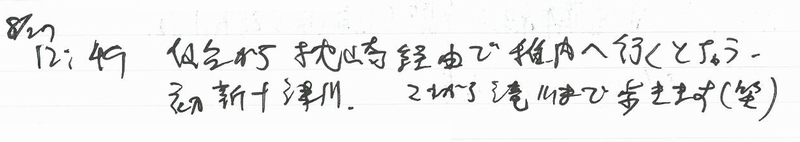 8/27
12:49 仙台から枕崎経由で稚内へ行くとちゅう.
初新十津川. これから滝川まで歩きます(笑)